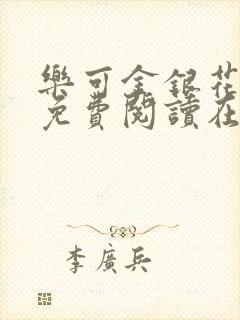 樂可金銀花
免費閱讀在
李廣兵